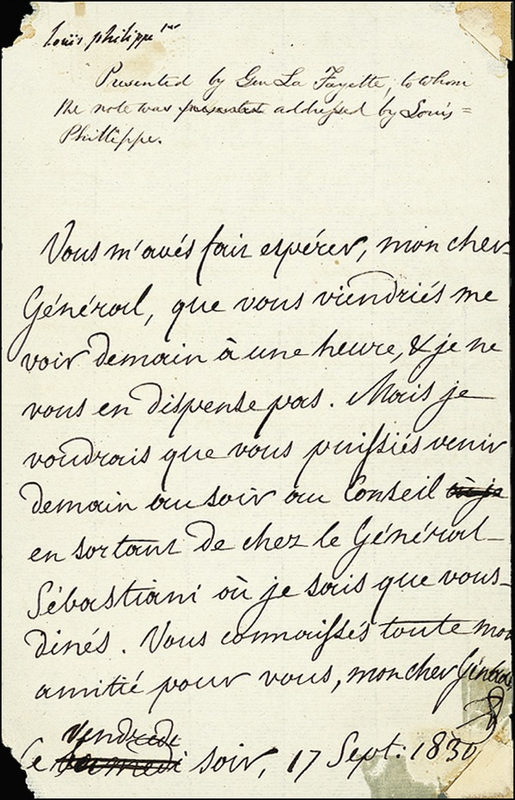 Louis philippe 1er
Presented by Gen La Fayette, to whom
the note was presented addressed by Louis=
Phillippe.
Vous m'avés fait espérer, mon cher
Général, que vous viendriés me
voir demain à une heure, & je ne
vous en dispense pas. Mais je
voudrais que vous puissiés venir
demain au soir au Conseil où je
en sortant de chez le Général
Sébastiani où je sais que vous
dinés. Vous connaissés toute mon
amitié pour vous, mon cher Général
vendredi
Ce samedi soir, 17 Sept: 1830